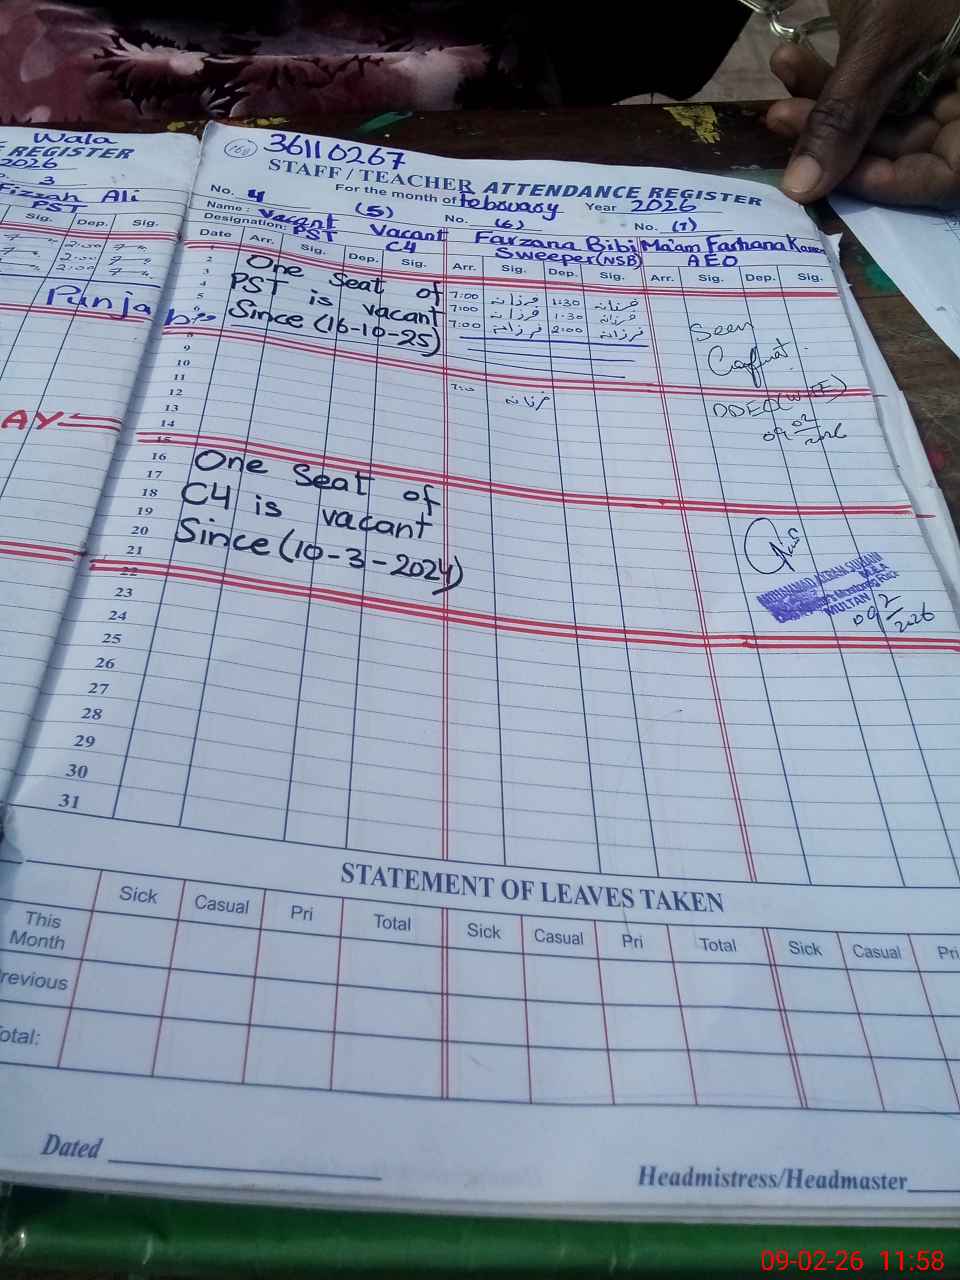 Wala
REGISTER
2026
3
Fizzah Ali
PST
Sig. Dep. Sig.
2:00
2:00
Punja
AY
168 36110267
STAFF / TEACHER ATTENDANCE REGISTER
For the month of february Year 2026
No. 4 (5) No. (6) No. (7)
Name: Vacant Vacant Farzana Bibi Ma'am Farhana
Designation: PST C4 Sweeper (NSB) AEO
Date Arr. Sig. Dep. Sig. Arr. Sig. Dep. Sig. Arr. Sig. Dep. Sig.
1
2
3
4
5
8
9
10
11
12
13
14
15
16
17
18
19
20
21
22
23
24
25
26
27
28
29
30
31
One Seat of
PST is vacant
Since (16-10-25)
7:00 فرزانہ 1:30 فرزانہ
7:00 فرزانہ 1:30 فرزانہ
7:00 فرزانہ 2:00 فرزانہ
فرزانہ
Seen
09 02/2026
One Seat of
C4 is vacant
Since (10-3-2024)
MULTAN
09 2/2026
STATEMENT OF LEAVES TAKEN
Sick Casual Pri Total Sick Casual Pri Total Sick Casual Pri
This Month
revious
otal:
Dated
Headmistress/Headmaster
09-02-26 11:58